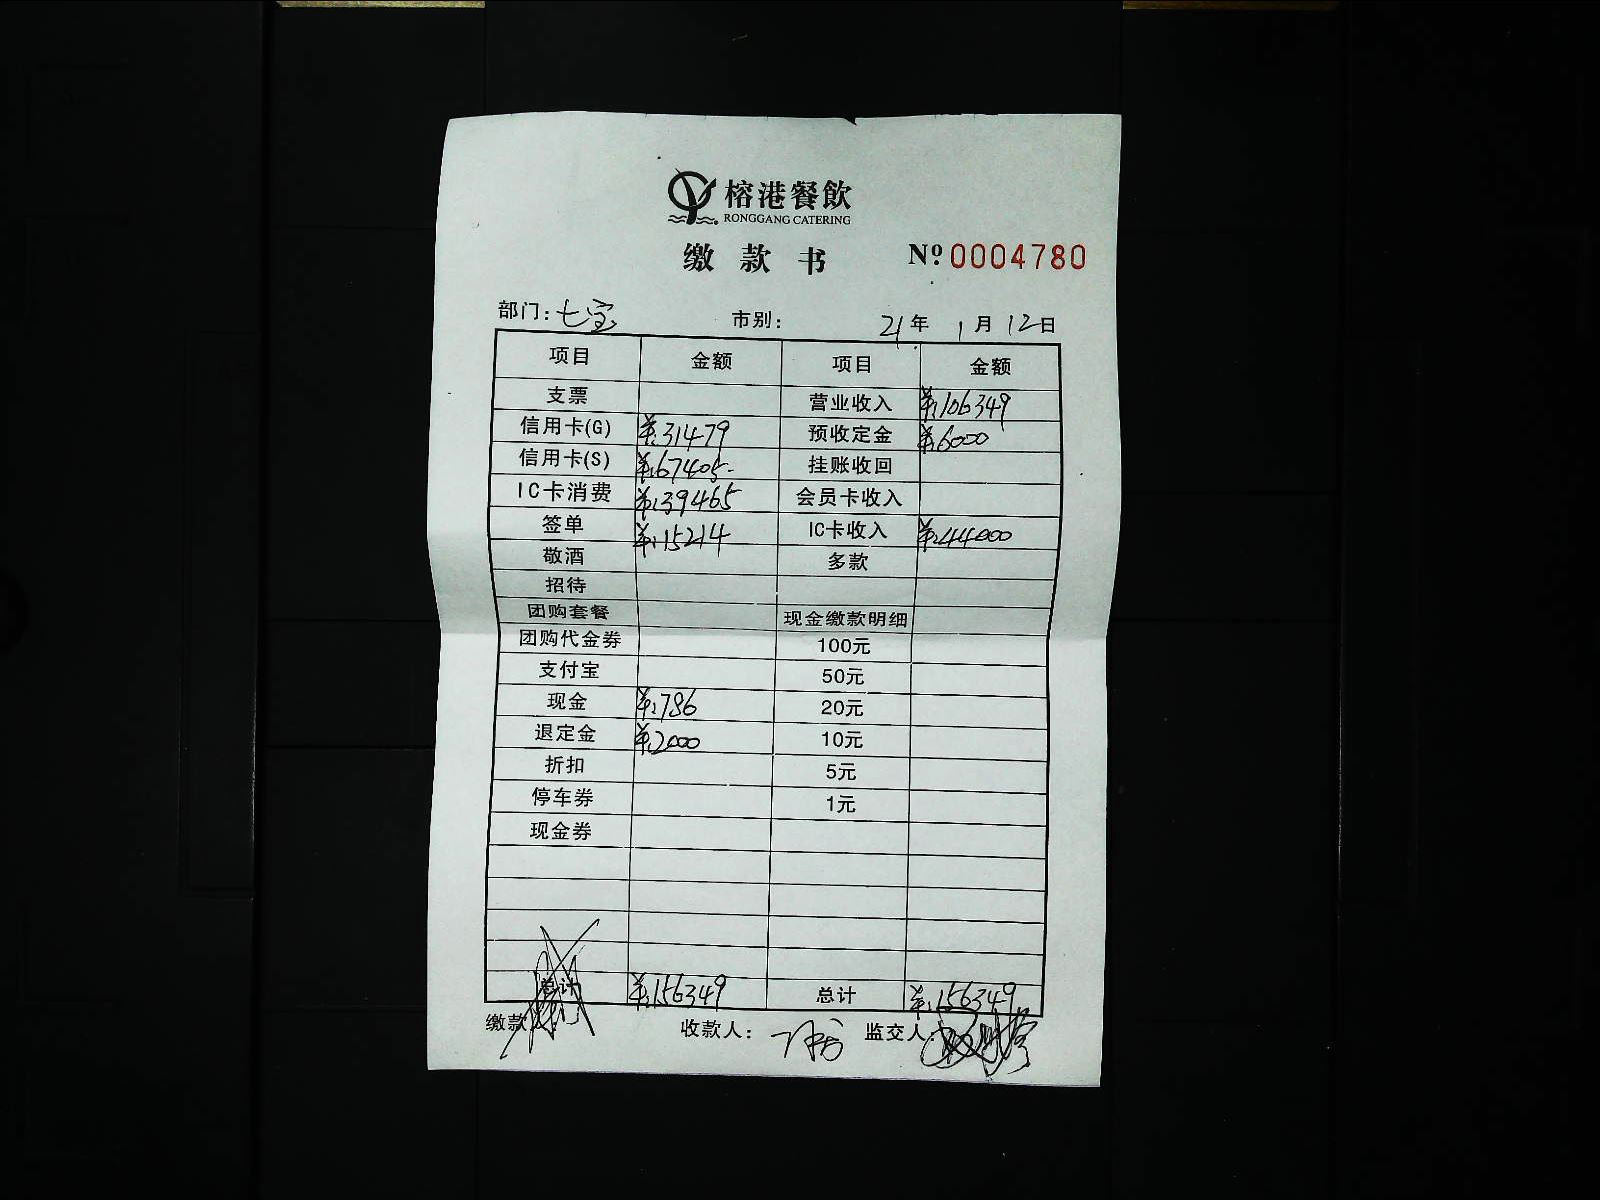 榕港餐飲
RONGGANG CATERING
缴款书 Nº 0004780
部门：七宝 市别： 21年 1月 12日
项目 金额 项目 金额
支票 营业收入 ¥:106349
信用卡(G) ¥:31479 预收定金 ¥:6000
信用卡(S) ¥:67405- 挂账收回
IC卡消费 ¥:39465 会员卡收入
签单 ¥:15214 IC卡收入 ¥:44000
敬酒 多款
招待
团购套餐 现金缴款明细
团购代金券 100元
支付宝 50元
现金 ¥:786 20元
退定金 ¥:2000 10元
折扣 5元
停车券 1元
现金券
总计 ¥:156349 总计 ¥:156349
缴款 收款人： 监交人：